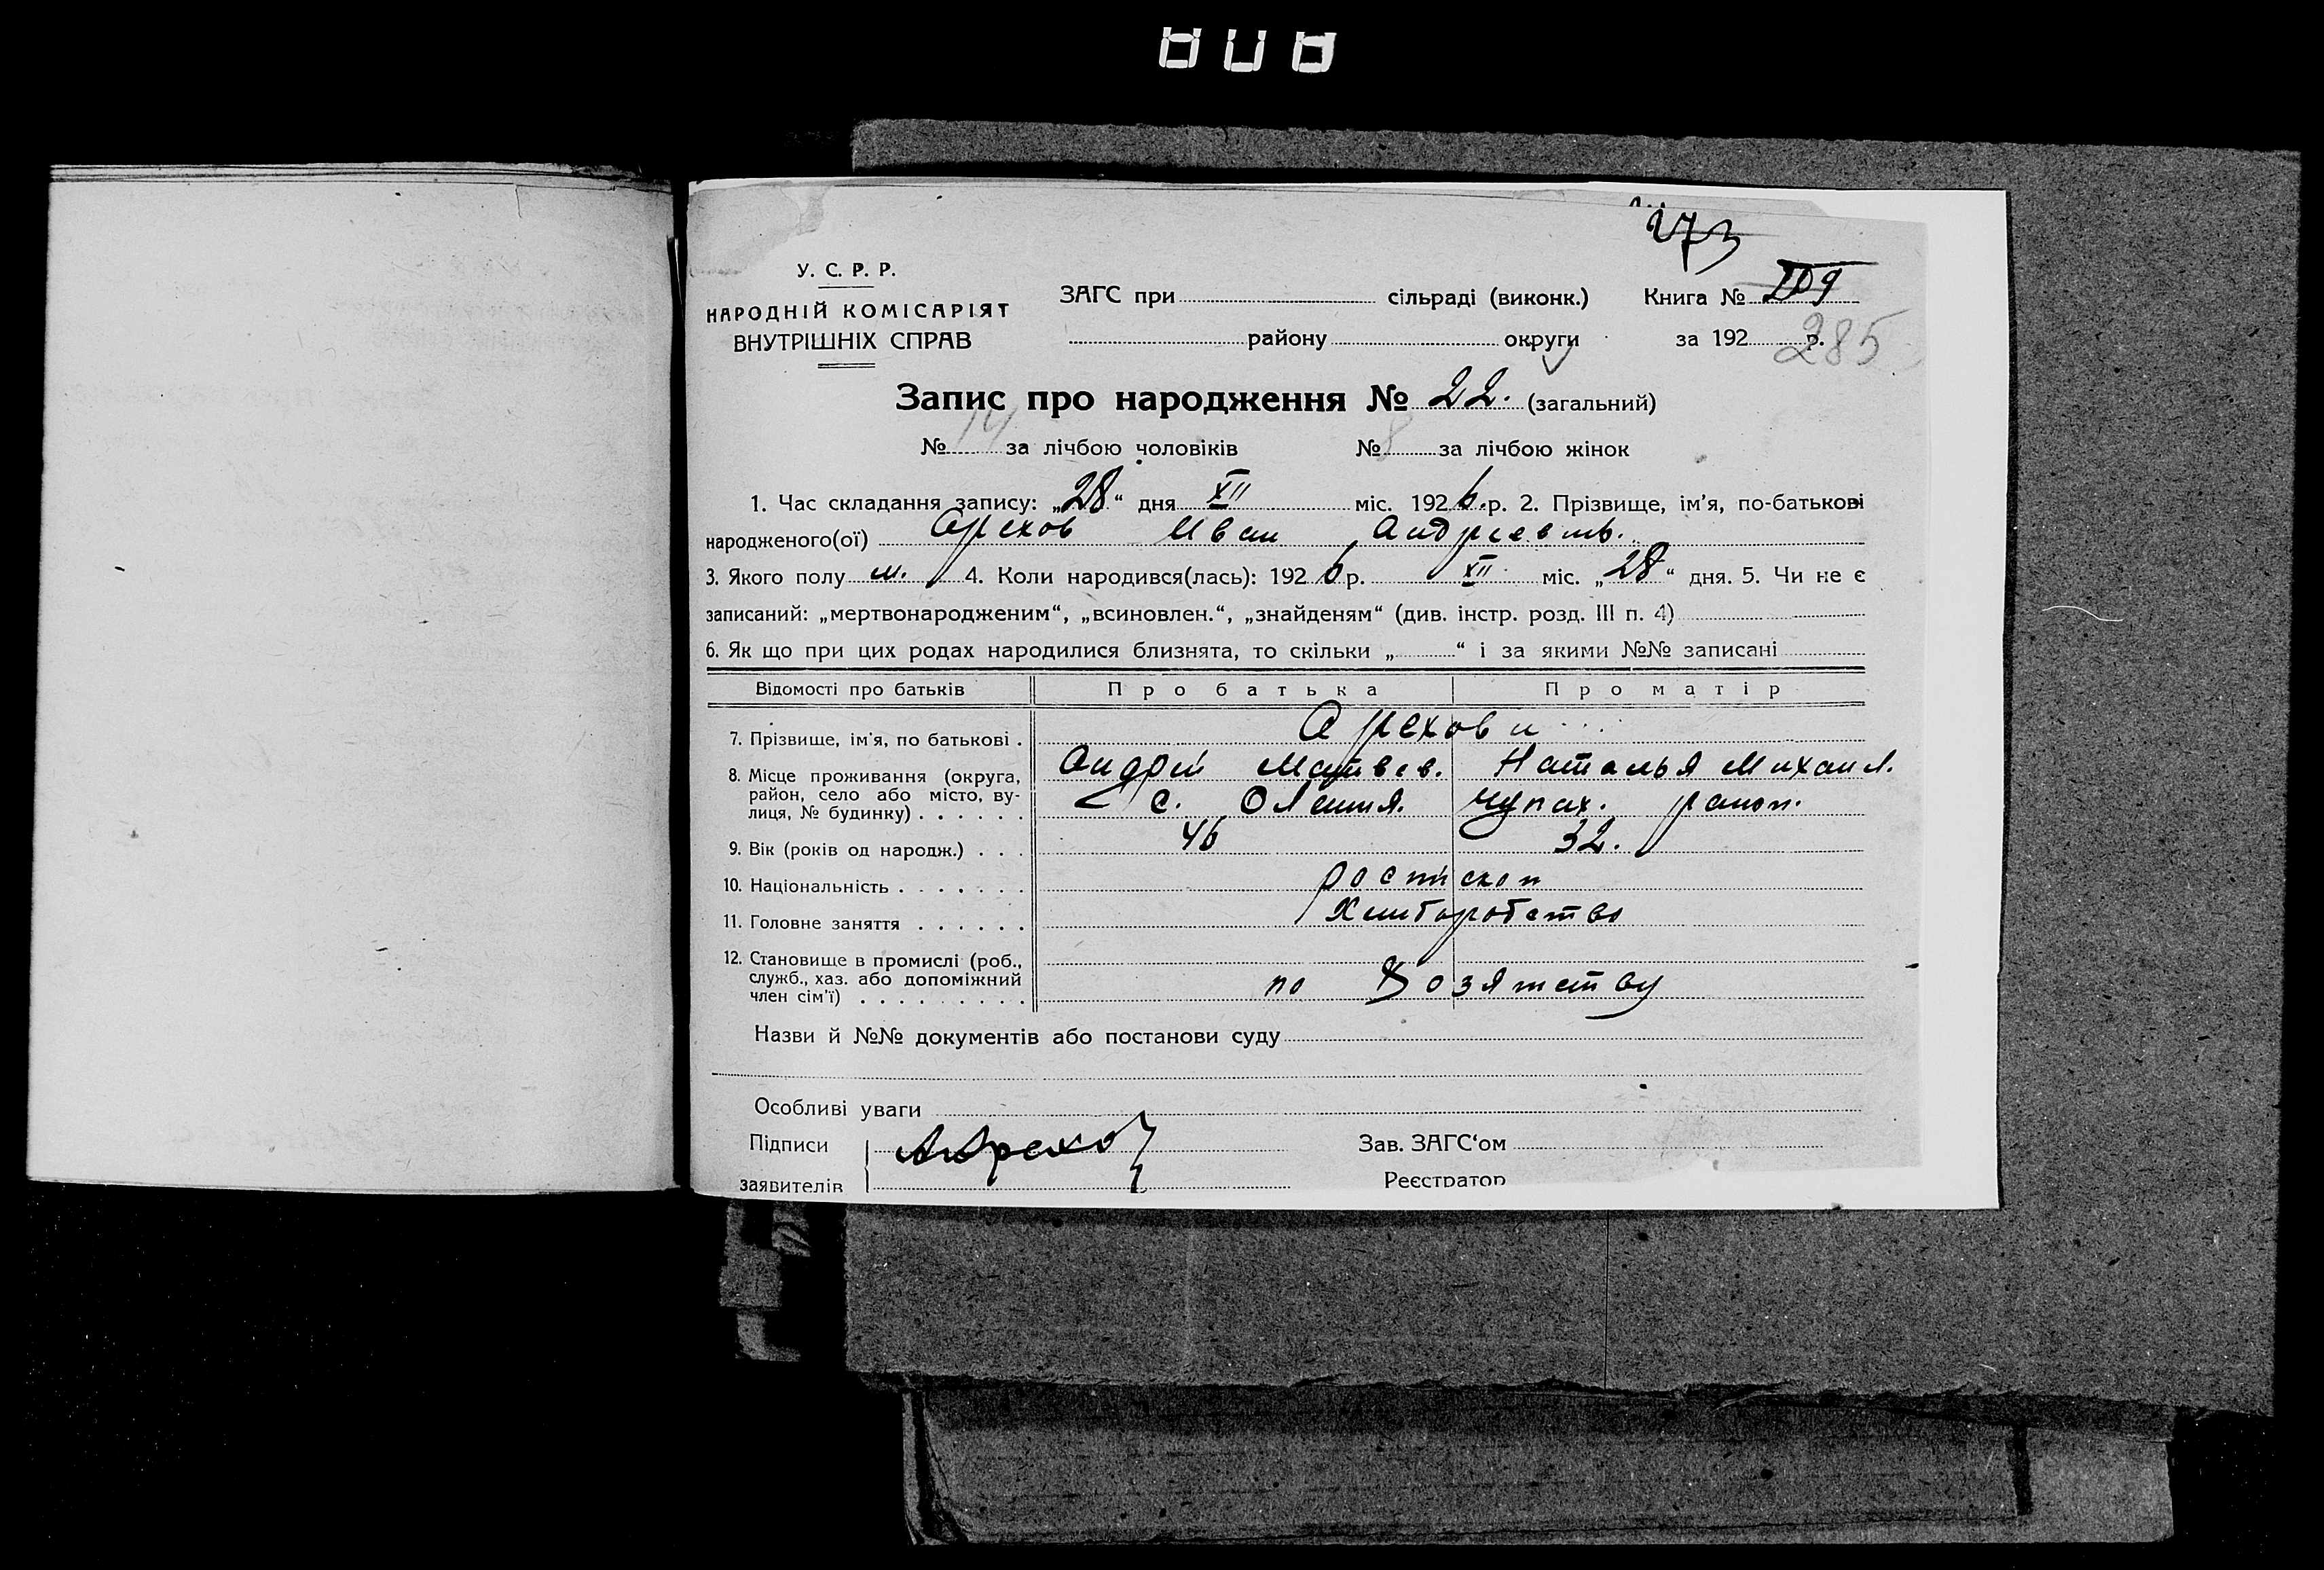 273
У. С. Р. Р.
НАРОДНІЙ КОМІСАРІЯТ
ВНУТРІШНІХ СПРАВ
ЗАГС при сільраді (виконк.) Книга № 209
району округи за 192 р. 285
Запис про народження № 22. (загальний)
№ 14 за лічбою чоловіків № 8 за лічбою жінок
1. Час складання запису: „28“ дня XII міс. 1926. р. 2. Прізвище, ім’я, по-батькові
народженого(ої) Орехов Иван Андреевич.
3. Якого полу м. 4. Коли народився(лась): 1926 р. XII міс. „28“ дня. 5. Чи не є
записаний: „мертвонародженим“, „всиновлен.“, „знайденям“ (див. інстр. розд. III п. 4)
6. Як що при цих родах народилися близнята, то скільки „ “ і за якими №№ записані
Відомості про батьків Про батька Про матір
7. Прізвище, ім’я, по батькові . Орехови
Андрій Матвев. Наталья Михаил.
8. Місце проживання (округа,
район, село або місто, ву-
лиця, № будинку) . . . . . . с. Олешня. Чупах. район.
9. Вік (років од народж.) . . . 46 32.
10. Національність . . . . . . .
11. Головне заняття . . . . . . Хлиборобство
12. Становище в промислі (роб.,
служб., хаз. або допоміжний
член сім’ї) . . . . . . . . . по
Назви й №№ документів або постанови суду
Особливі уваги
Підписи АОрехов Зав. ЗАГС‘ом
заявителів Реєстратор